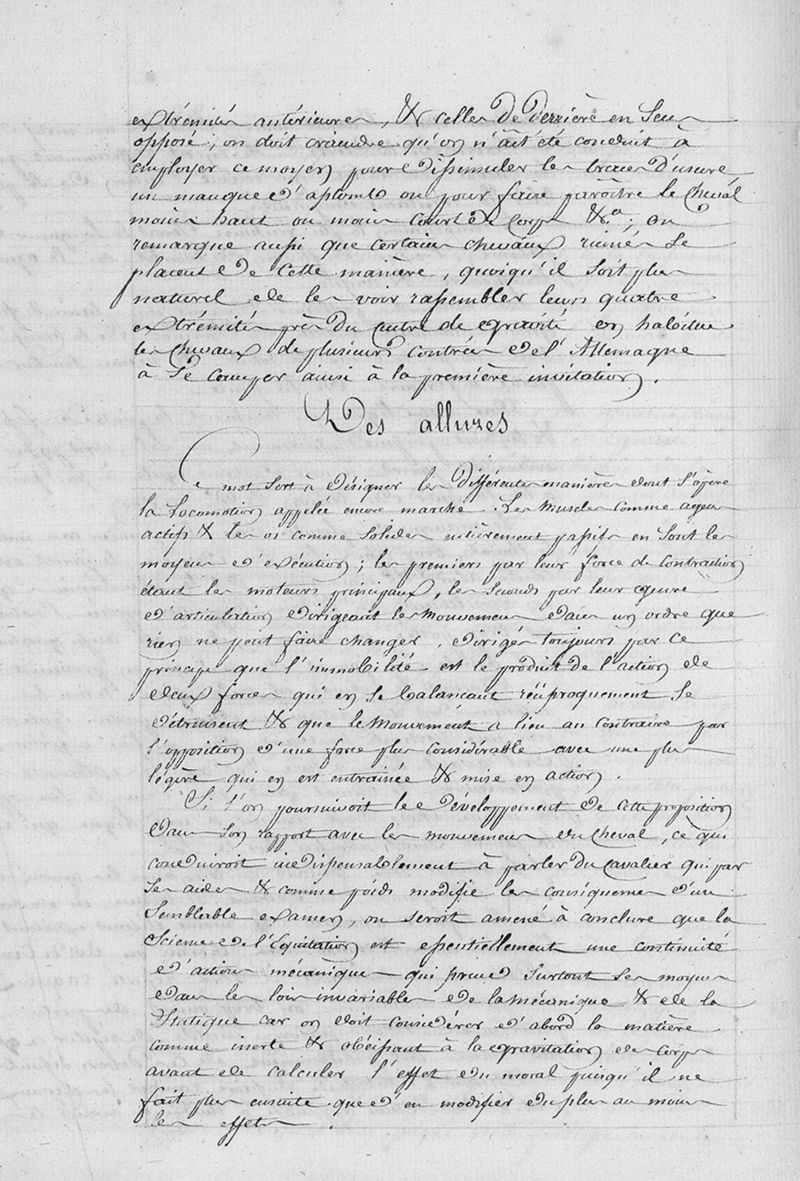 extrémités antérieures, & celles de derrière en sens
opposé, on doit craindre qu'on n'ait été conduit à
employer ce moyen pour dissimuler les traces d'usure
un manque d'aplomb ou pour faire paroître le cheval
moins haut ou moins court de corps &a; on
remarque aussi que certains chevaux ruinés se
placent de cette manière, quoiqu'il soit plus
naturel de les voir rassembler leurs quatre
extrémités près du centre de gravité on habitue
les chevaux de plusieurs contrées de l'Allemagne
à se camper ainsi à la première invitation.
Des allures
Ce mot sert à désigner les différentes manières dont s'opère
la Locomotion appelée encore marche. Les Muscles comme agens
actifs & les os comme solides entièrement passifs en sont les
moyens d'exécution; les premiers par leur force de contraction
étant les moteurs principaux, les seconds par leur genre
d'articulation dirigeant les mouvemens dans un ordre que
rien ne peut faire changer. dirigés toujours par ce
principe que l'immobilité est le produit de l'action de
deux forces qui en se balançant réciproquement se
détruisent & que le mouvement a lieu au contraire par
l'opposition d'une force plus considérable avec une plus
légère qui en est entrainée & mise en action.
Si l'on poursuivoit le développement de cette proposition
dans son rapport avec les mouvemens du Cheval, ce qui
conduiroit indispensablement à parler du Cavalier qui par
ses aides & comme poids modifie les conséquences d'un
semblable examen, on seroit amené à conclure que la
Science de l'Equitation est essentiellement une continuité
d'actions mécaniques qui prend surtout ses moyens
dans les lois invariables de la mécanique & de la
Statique car on doit considérer d'abord la matière
comme inerte & obéissant à la gravitation des corps
avant de calculer l'effet du moral puisqu'il ne
fait plus ensuite que d'en modifier du plus au moins
les effets.